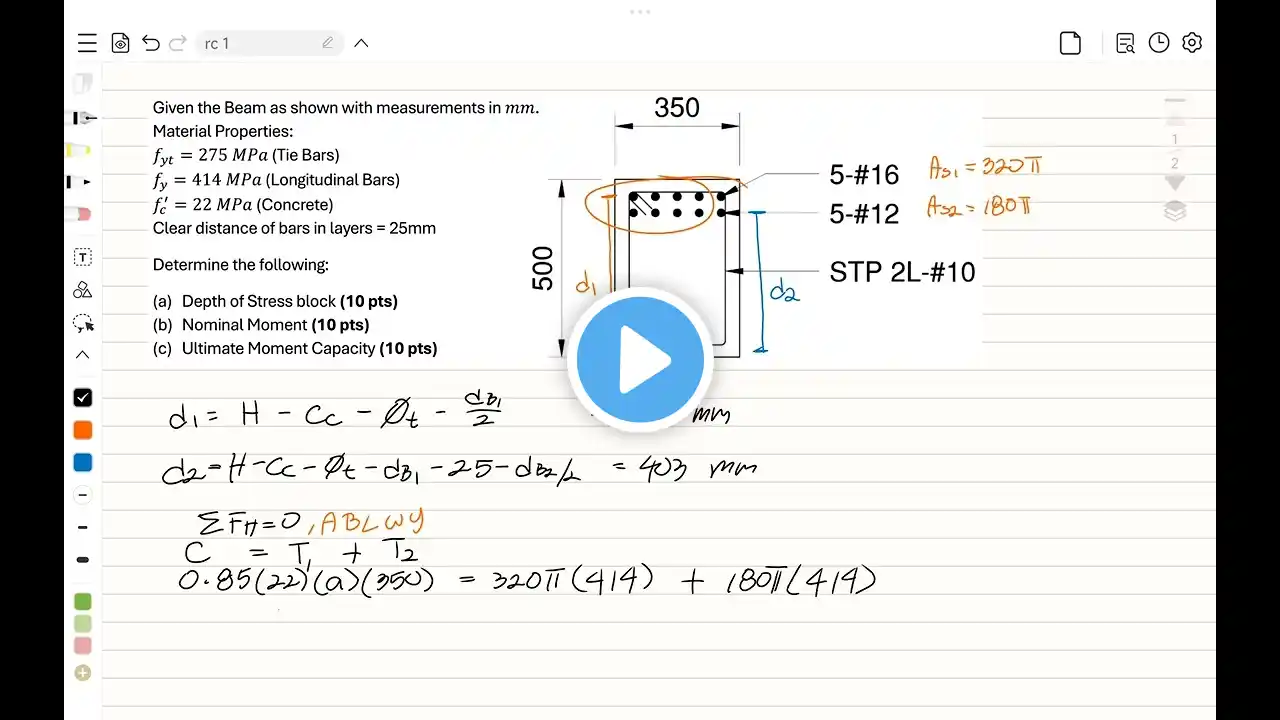 rc 1
Given the Beam as shown with measurements in mm.
Material Properties:
f_yt = 275 MPa (Tie Bars)
f_y = 414 MPa (Longitudinal Bars)
f_c' = 22 MPa (Concrete)
Clear distance of bars in layers = 25mm
Determine the following:
(a) Depth of Stress block (10 pts)
(b) Nominal Moment (10 pts)
(c) Ultimate Moment Capacity (10 pts)
350
500
5-#16 As1 = 320π
5-#12 As2 = 180π
STP 2L-#10
d1
d2
1
2
T
d1 = H - Cc - Øt - dB1/2 mm
d2 = H - Cc - Øt - dB1 - 25 - dB2/2 = 403 mm
ΣFH = 0, ABLWY
C = T1 + T2
0.85(22)(a)(350) = 320π(414) + 180π(414)